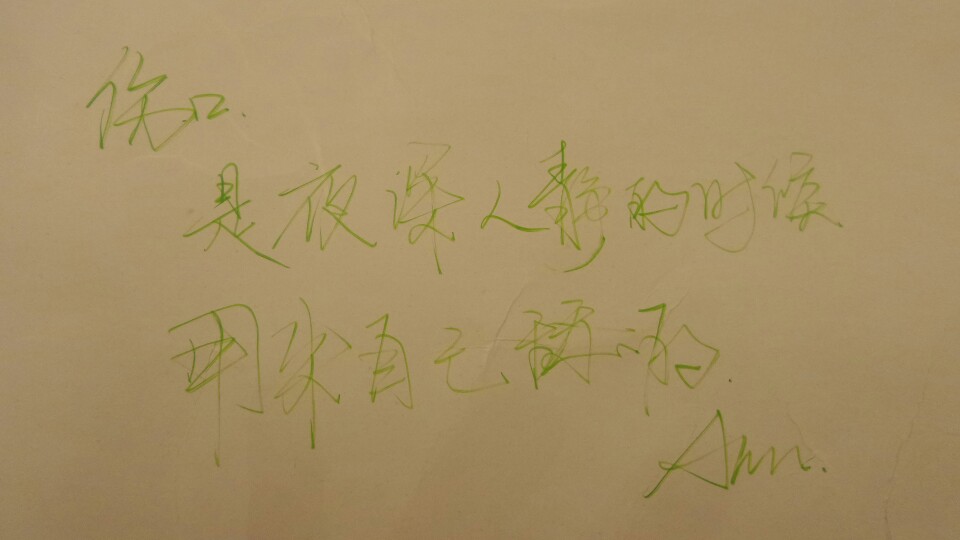 伤口.
是夜深人静的时候
用来自己舔的.
Ann.